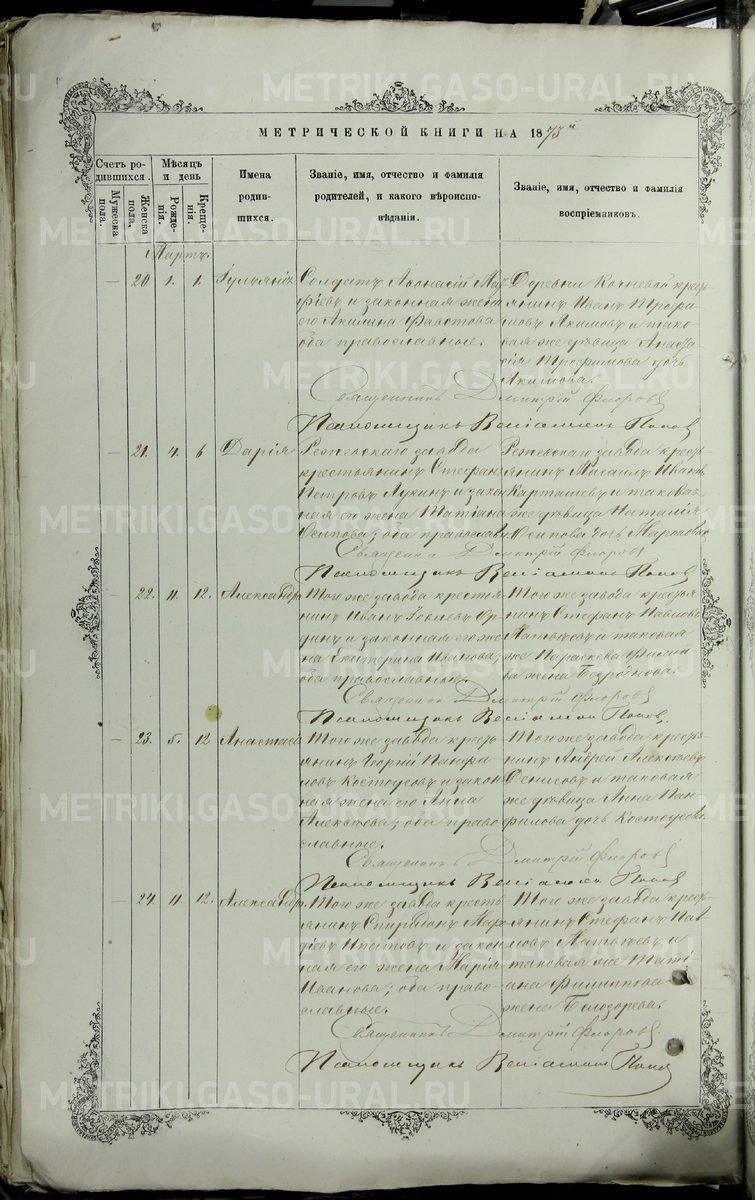 МЕТРИЧЕСКОЙ КНИГИ НА 1875й
Счетъ родившихся.
Мѣсяцъ и день
Мужеска пола.
Женска пола,
Рожденія.
Крещенія.
Имена родившихся.
Званіе, имя, отчество и фамилія родителей, и какого вѣроисповѣданія.
Званіе, имя, отчество и фамилія воспріемниковъ.
Мартъ.
— 20. 1. 1. Іульянія
Солдатъ Аѳонасій
фіевъ и законная жена
его Акилина Фавстова
оба православные.
Деревни Кочневой кресть
янинъ Иванъ Трофи
мовъ Акимовъ и тако
вая же дѣвица Анаста
сія Трофимова дочь
Акимова.
Священникъ Димитрій Флоровъ
Псаломщикъ Веніаминъ Поповъ
— 21. 4. 6 Дарія
Режевскаго завода
крестьянинъ Стефанъ
Петровъ Лукинъ и закон
ная его жена Татіана
Осипова; оба православн.
Режевскаго завода кресть
янинъ Михаилъ Ивановъ
Карташевъ и таковая
же дѣвица Наталія
Осипова дочь
Священникъ Димитрій Флоровъ
Псаломщикъ Веніаминъ Поповъ
— 22. 11. 12. Александра
Того же завода крестья
нинъ Иванъ
и законная его же
на Екатерина Иванова;
оба православные.
Того же завода крестья
нинъ Стефанъ Павловъ
Матвѣевъ и таковая
же Параскева Филипо
ва жена
Священникъ Димитрій Флоровъ
Псаломщикъ Веніаминъ Поповъ
— 23. 5. 12 Анастасія
Того же завода кресть
янинъ Георгій Панфи
ловъ Костоусовъ и закон
ная жена его Анна
Алексѣева; оба право
славные.
Того же завода крестья
нинъ Андрей Алексѣевъ
Денисовъ и таковая
же дѣвица Анна Пан
филова дочь Костоусова
Священникъ Димитрій Флоровъ
Псаломщикъ Веніаминъ Поповъ
— 24. 11. 12. Александра
Того же завода кресть
янинъ Спиридонъ
Ипатовъ и закон
ная его жена Марія
Иванова; оба право
славные.
Того же завода кресть
янинъ Стефанъ Пав
ловъ Матвѣевъ и
таковая же Тати
ана Филиппова
жена Белозорева.
Священникъ Димитрій Флоровъ
Псаломщикъ Веніаминъ Поповъ
METRIKI.GASO-URAL.RU